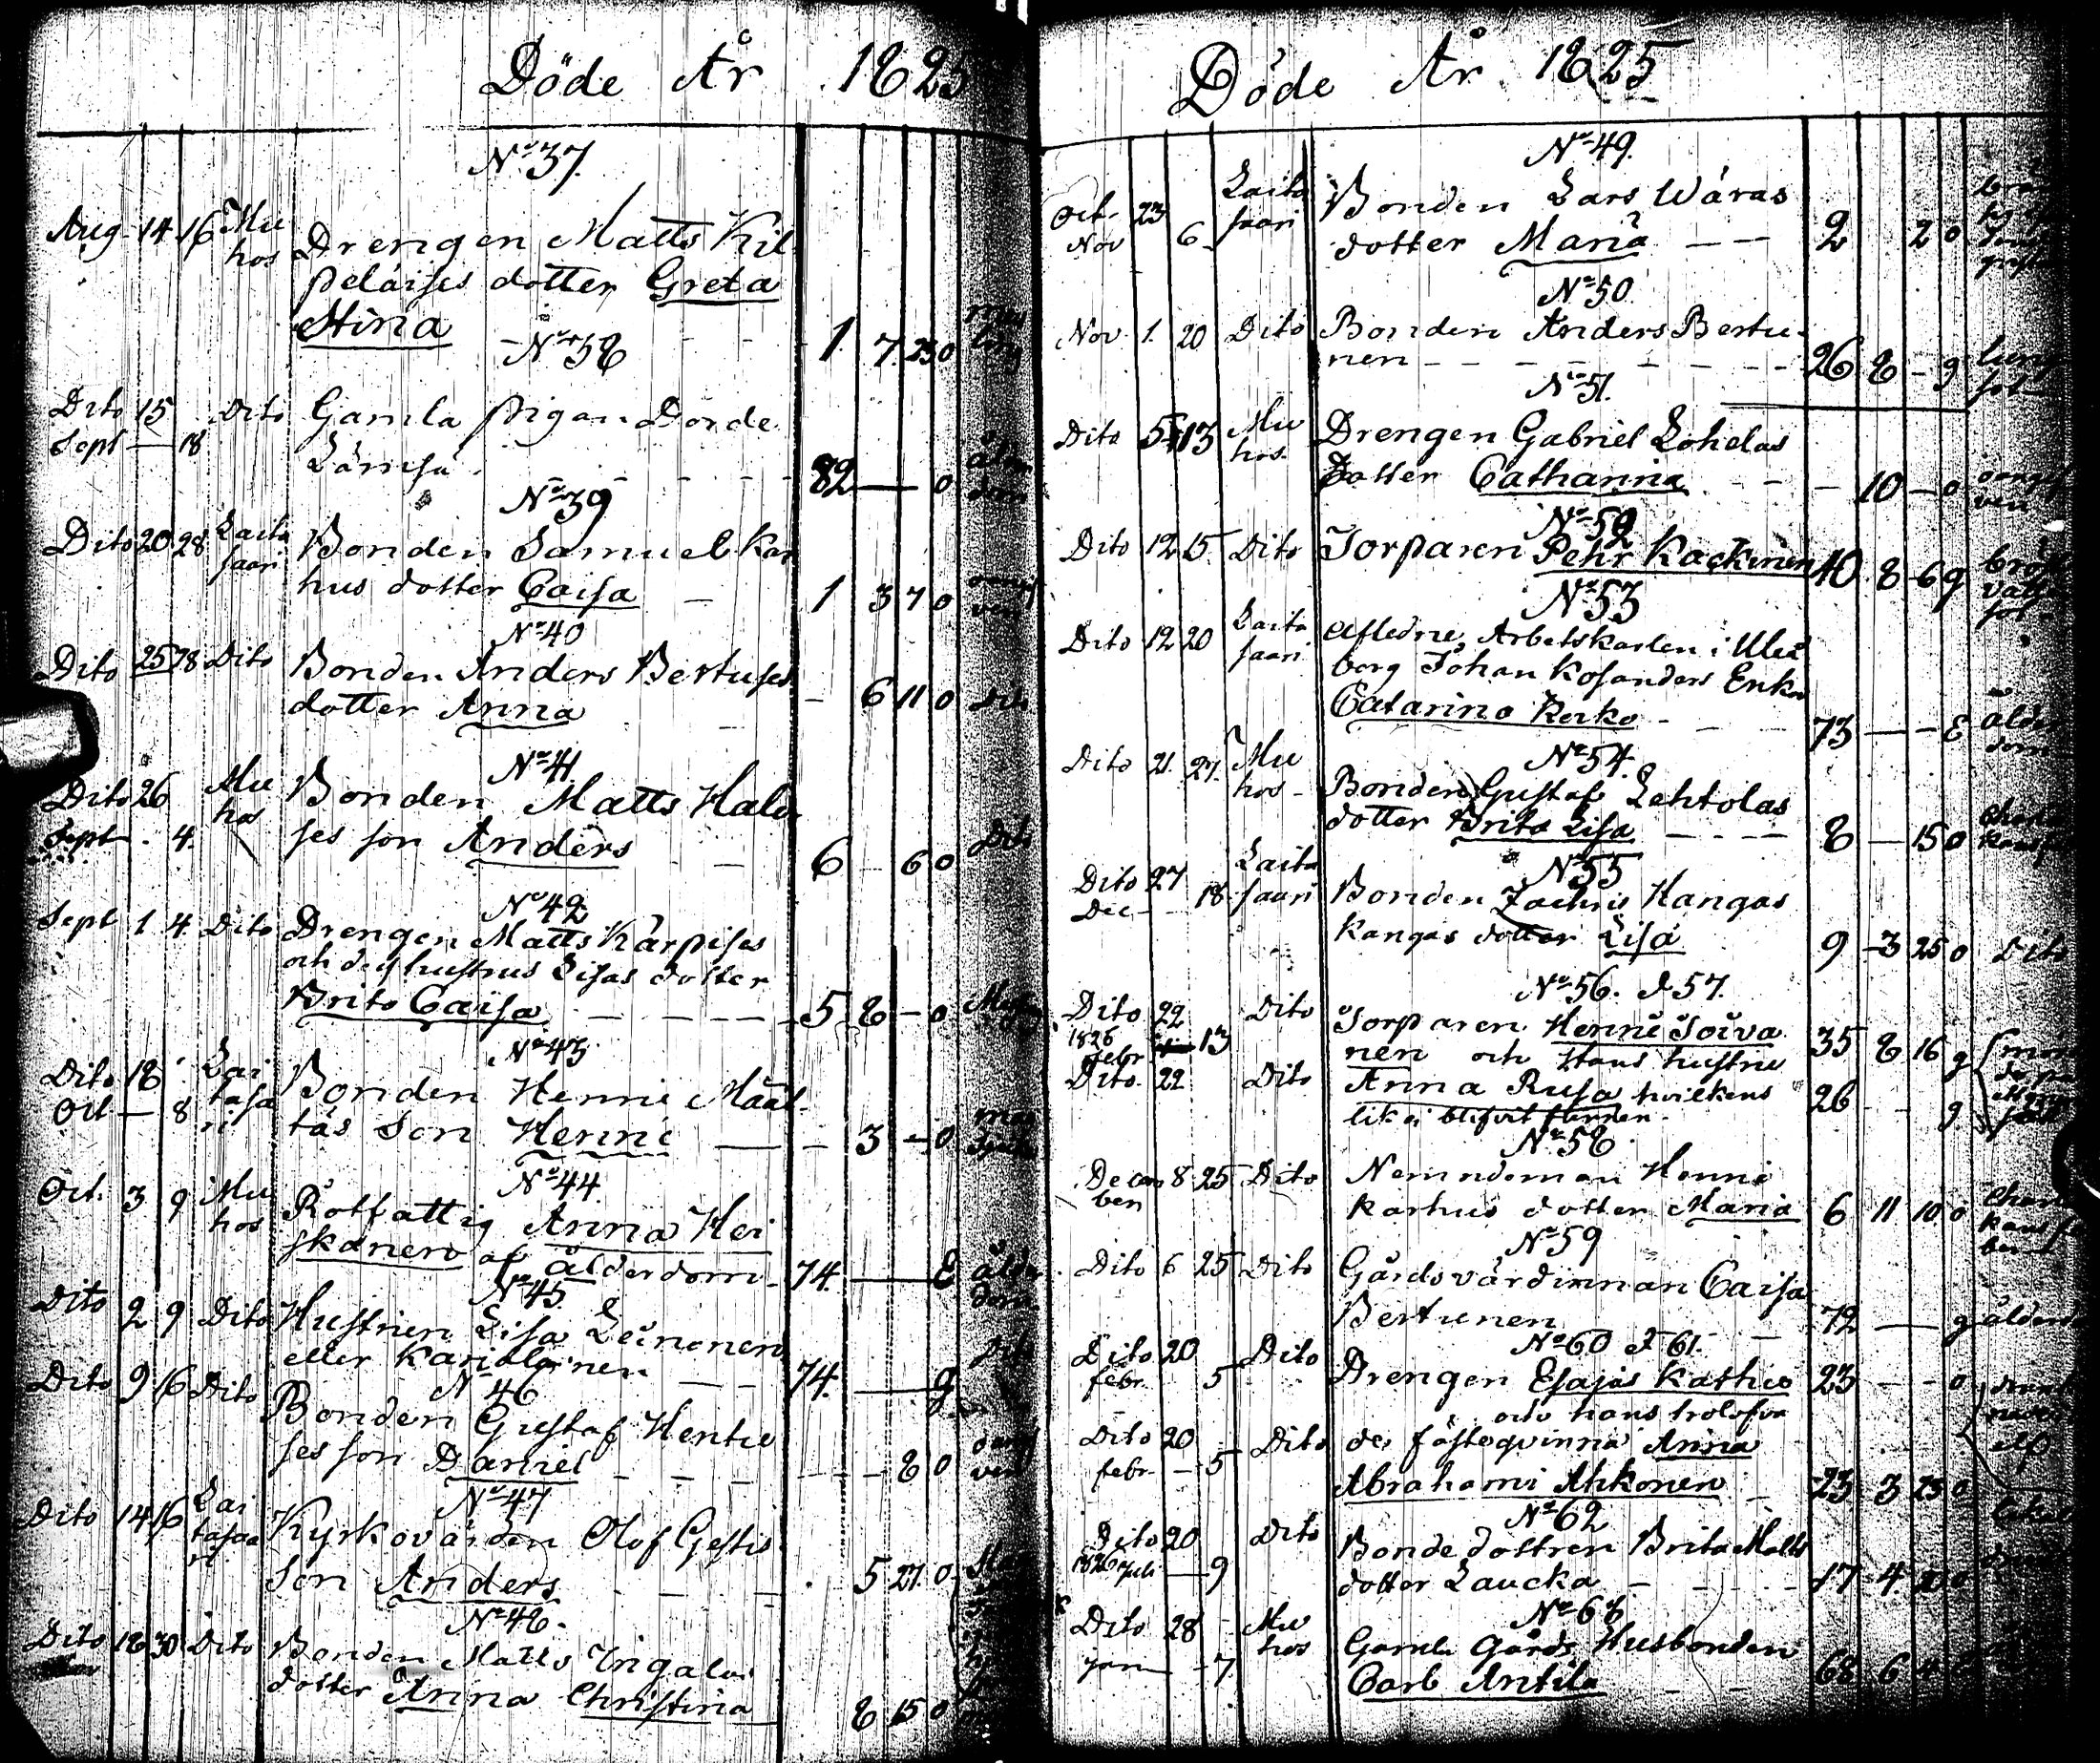 Döde År 1825
N:o 37.
Aug 14 16 Mu
hos
Drengen Matts Kil
peläises dotter Greta
Stina 1. 7. 23 0
N:o 38
Dito 15 Dito Gamla pigan Dorde
Sept — 18
Lämsä 82 — 0 ålder
dom
N:o 39
Dito 20 28 Laita
saari
Bonden Samuel Kar
hus dotter Caisa — 1 3 7 0
N:o 40
Dito 25 28 Dito Bonden Anders Bertuses
dotter Anna — — 6 11 0 Dito
N:o 41.
Dito 26 Mu
hos
Sept. 4.
Bonden Matts Halo
ses son Anders — 6 — 6 0 Dito
N:o 42
Sept 1 4 Dito Drengen Matts Kärpises
och dess hustrus Lisas dotter
Brita Caisa — 5 8 — 0
N:o 43
Dito 18 Lai
tasa
ri
Oct — 8
Bonden Henric Määt
täs Son Henric — — 3 — 0
N:o 44.
Oct. 3 9 Mu
hos
Rotfattig Anna Hei
skanen af ålderdom 74. — E ålder
dom
N:o 45.
Dito 2 9 Dito Hustrun Lisa Leinonen
eller Karjalainen — 74. — g Dito
N:o 46
Dito 9 16 Dito Bonden Gustaf Hentu
ses son Daniel — — 8 0
N:o 47
Dito 14 16 Lai
tasaa
ri
Kyrkovärden Olof Gestis
Son Anders — 5 21. 0
N:o 48.
Dito 18 30 Dito Bonden Matts
dotter Anna Christina 8 15 0
Döde År 1825
N:o 49.
Oct. 23 Laita
saari
Nov 6
Bonden Lars Wäras
dotter Maria — — 2 2 0
N:o 50
Nov. 1. 20 Dito Bonden Anders Bertu
nen — 26 8 — g lung
sot
N:o 51.
Dito 5 13 Mu
hos.
Drengen Gabriel Lohelas
Dotter Catharina — — 10 — 0
N:o 52
Dito 12 15. Dito Torparen Pehr Kackinen 40. 8 6 g bröst
vatten
sot
N:o 53
Dito 12 20 Laita
saari
Afledne Arbetskarlen i Uleå
borg Johan Kosanders Enka
Catarina Kerko — 73 — — E ålder
dom
N:o 54.
Dito 21. 27. Mu
hos
Bonden Gustaf Lehtolas
dotter Brita Lisa — 8 — 15 0
N:o 55
Dito 27 Laita
saari
Dec — 18
Bonden Zachris Kangas
kangas dotter Lisa 9 — 3 25 0 Dito
N:o 56. & 57.
Dito 22 Dito Torparen Henric Toiva
1826
febr 13
nen och Hans hustru 35 8 16 g
Dito. 22 Dito Anna Rusa hvilkens 26 — g
lik ei blifvit funnen.
N:o 58
Decem
ber 8 25 Dito Nemndeman Henric
Karhus dotter Maria 6 11 10 0
N:o 59
Dito 6 25 Dito Gårdsvärdinnan Caisa
Bertunen — 72 — g ålderd
N:o 60 & 61.
Dito 20 Dito Drengen Esajas Kathu 23 — — 0
febr. 5
och hans trolofva
Dito 20 Dito de fästeqvinna Anna
febr. — 5
Abrahami Ahkonen 23 3 23 0
N:o 62
Dito 20 Dito Bondedottren Brita Matts
1826 Juli — 9
dotter Laucka — 17 4
N:o 63
Dito 28 Mu
hos
jan — 7.
Gamle Gårds Husbonden
Carl Antila — 68 6